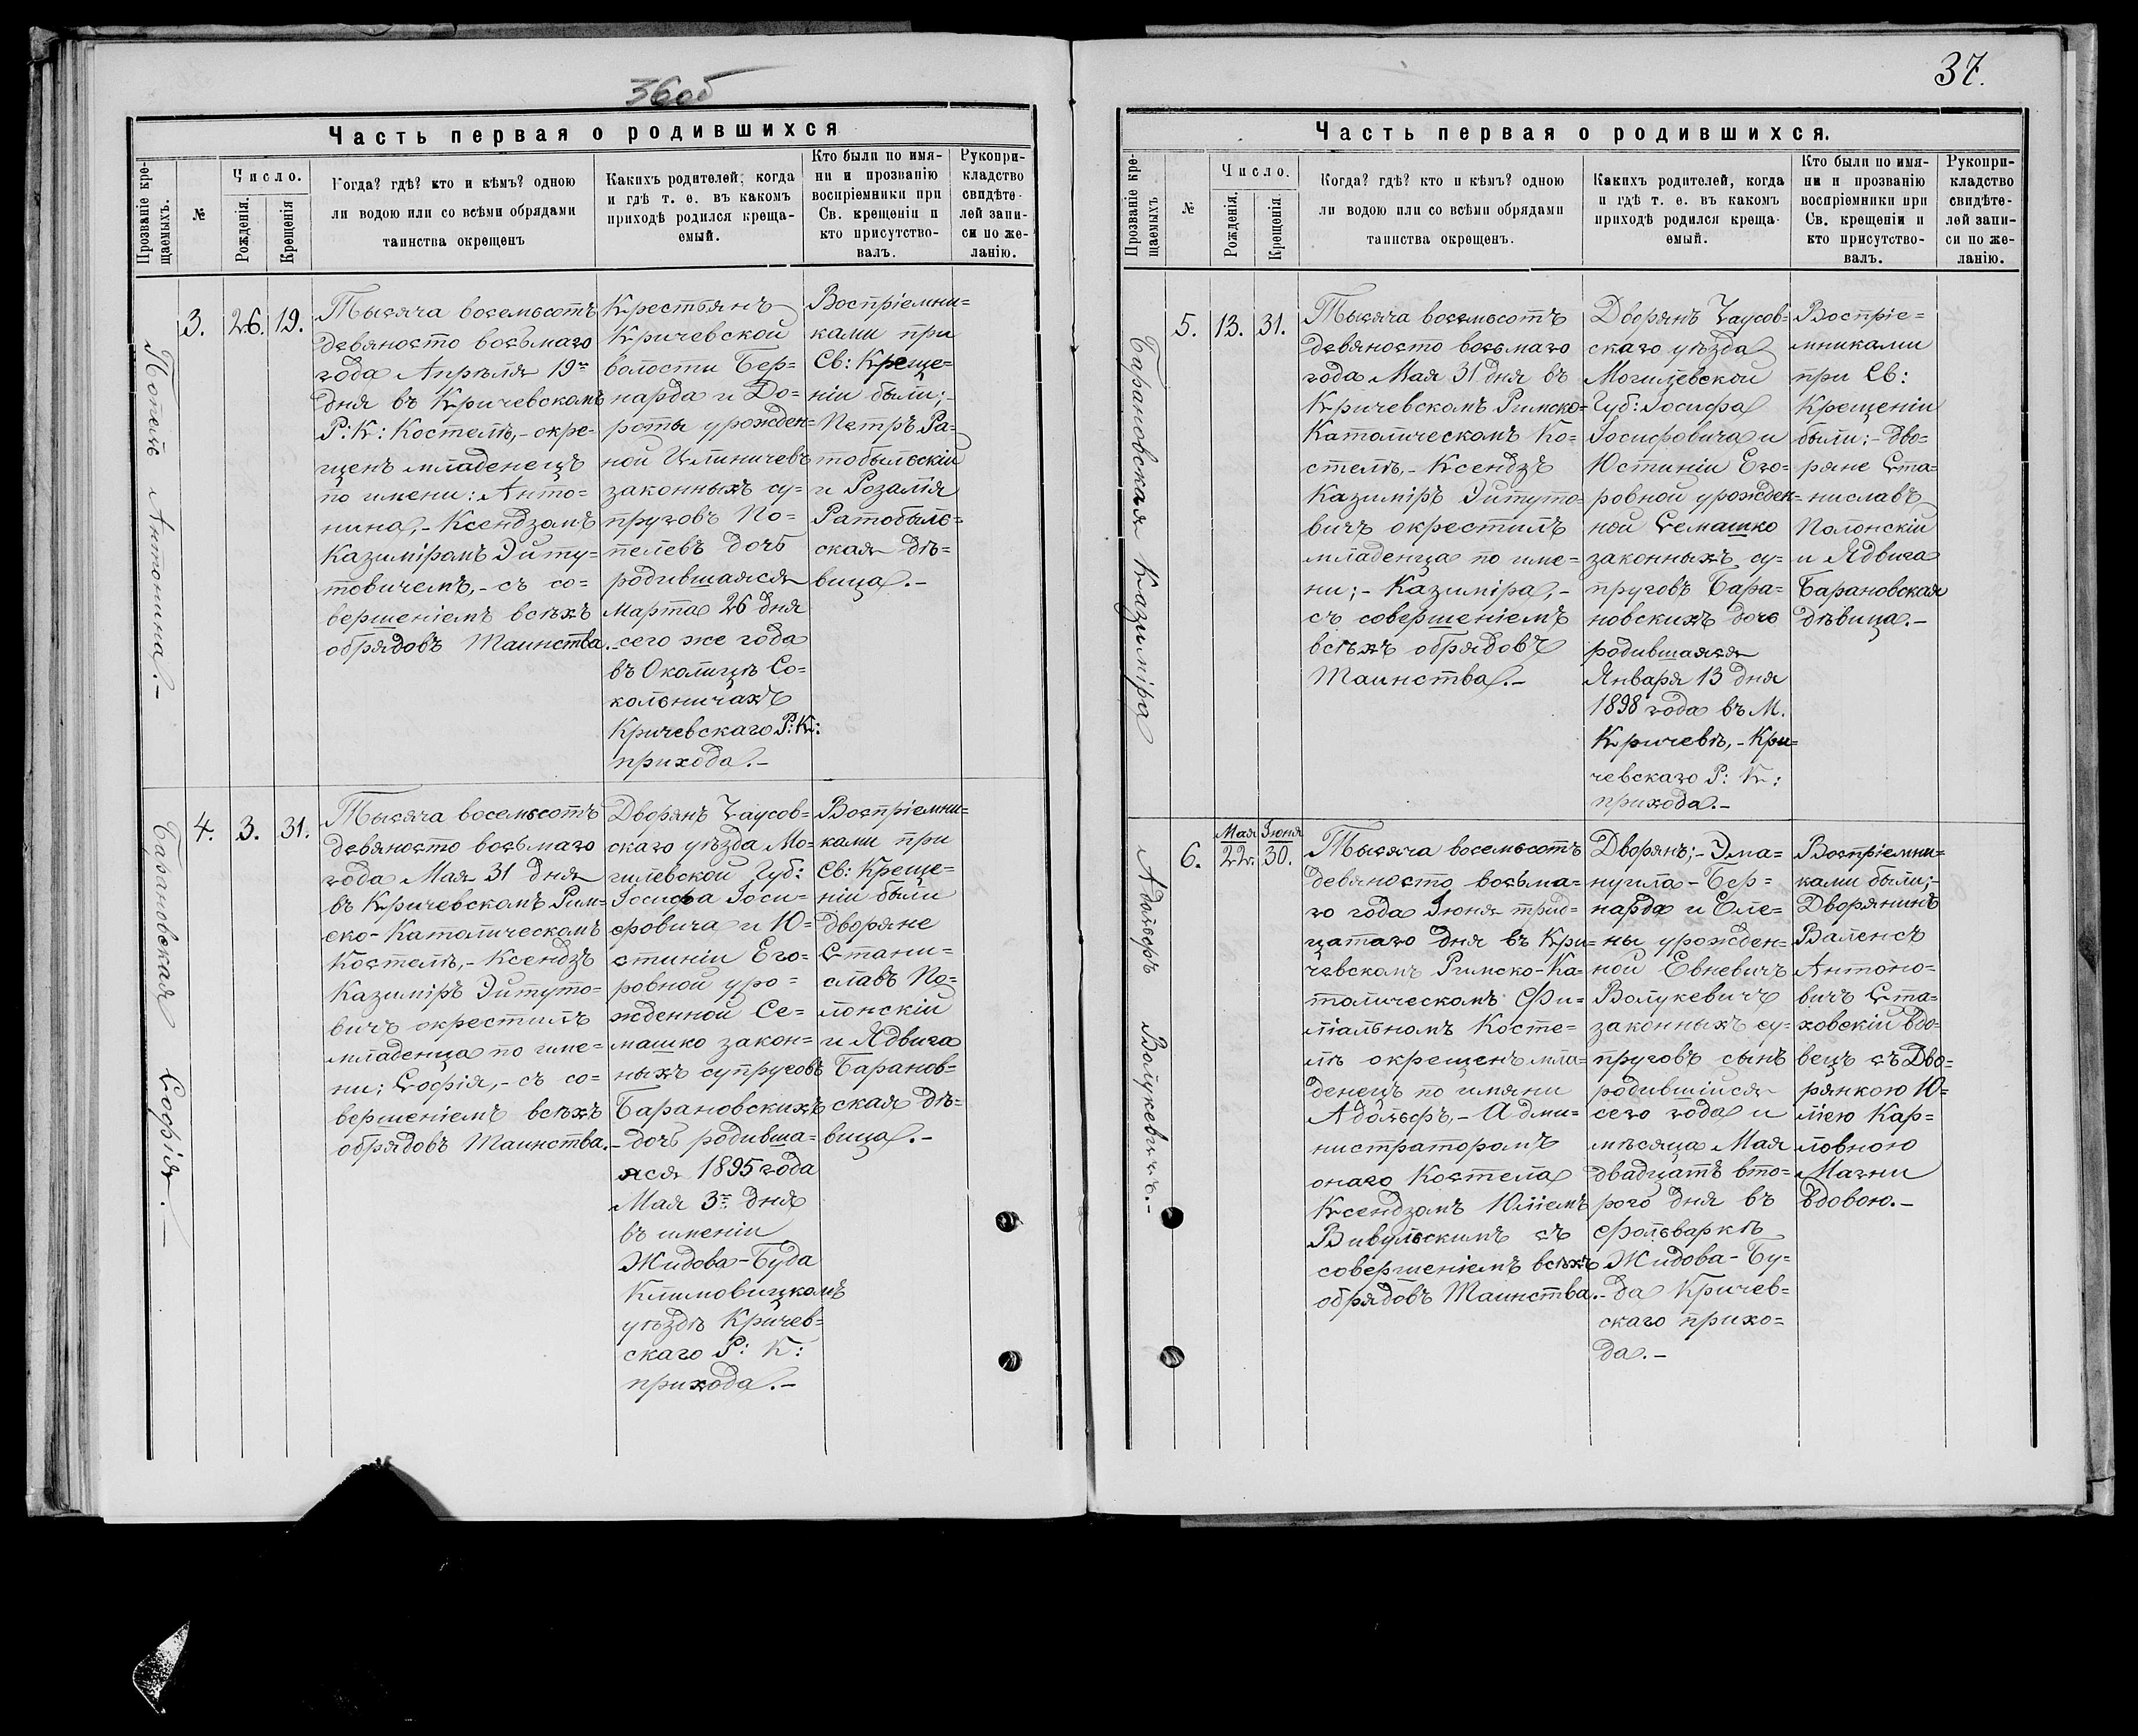 36об
Часть первая о родившихся
Прозваніе кре-
щаемыхъ.
№
Число.
Рожденія.
Крещенія
Когда? гдѣ? кто и кѣмъ? одною
ли водою или со всѣми обрядами
таинства окрещенъ
Какихъ родителей, когда
и гдѣ т. е. въ какомъ
приходѣ родился креща-
емый.
Кто были по имя-
ни и прозванію
воспріемники при
Св. крещеніи и
кто присутство-
валъ.
Рукопри-
кладство
свидѣте-
лей запи-
си по же-
ланію.
Попель Антонина.-
3.
26.
19.
Тысяча восемьсотъ
девяносто восьмаго
года Апрѣля 19го
дня въ Кричевскомъ
Р: К: Костелѣ,- окре-
щенъ младенецъ
по имени: Анто=
нина,- Ксендзомъ
Казиміромъ Эйту-
товичемъ,- съ со=
вершеніемъ всѣхъ
обрядовъ Таинства.-
Крестьянъ
Кричевской
волости Бер=
нарда и До=
роты урожден=
ной Илиничевъ
законныхъ су=
пруговъ По=
пелевъ дочь
родившаяся
Марта 26 дня
сего же года
въ Околицѣ Со=
кольничахъ
Кричевскаго Р: К:
прихода.-
Воспріемни=
ками при
Св: Креще=
ніи были;-
Петръ Ра=
тобыльскій
и Розалія
Ратобыль=
ская дѣ=
вица.-
Барановская Софія.-
4.
3.
31.
Тысяча восемьсотъ
девяносто восьмаго
года Мая 31 дня
въ Кричевскомъ Рим=
ско-Католическомъ
Костелѣ,- Ксендзъ
Казиміръ Эйтуто=
вичъ окрестилъ
младенца по име=
ни; Софія,- съ со=
вершеніемъ всѣхъ
обрядовъ Таинства.-
Дворянъ Чаусов=
скаго уѣзда Мо=
гилевской Губ:
Іосифа Іоси=
фовича и Ю=
стиніи Его=
ровной уро=
жденной Се=
машко закон=
ныхъ супруговъ
Барановскихъ
дочь родивша=
яся 1895 года
Мая 3го дня
въ имении
Жидова-Буда
Климовицкомъ
уѣздѣ Кричев=
скаго Р: К:
прихода.-
Воспріемни=
ками при
Св: Креще=
ніи были
Дворяне
Стани=
славъ По=
лонскій
и Ядвига
Баранов=
ская дѣ=
вица.-
37.
Часть первая о родившихся.
Прозваніе кре-
щаемыхъ
№
Число.
Рожденія.
Крещенія.
Когда? гдѣ? кто и кѣмъ? одною
ли водою или со всѣми обрядами
таинства окрещенъ.
Какихъ родителей, когда
и гдѣ т. е. въ какомъ
приходѣ родился креща-
емый.
Кто были по имя-
ни и прозванію
воспріемники при
Св. крещеніи и
кто присутство-
валъ.
Рукопри-
кладство
свидѣте-
лей запи-
си по же-
ланію.
Барановская Казиміра
5.
13.
31.
Тысяча восемьсотъ
девяносто восьмаго
года Мая 31 дня въ
Кричевскомъ Римско=
Католическомъ Ко=
стелѣ,- Ксендзъ
Казиміръ Эйтуто=
вичъ окрестилъ
младенца по име=
ни;- Казиміра,-
съ совершеніемъ
всѣхъ обрядовъ
Таинства.-
Дворянъ Чаусов=
скаго уѣзда
Могилевской
Губ: Іосифа
Іосифовича и
Юстиніи Его=
ровной урожден=
ной Семашко
законныхъ су=
пруговъ Бара=
новскихъ дочь
родившаяся
Января 13 дня
1898 года въ М.
Кричевѣ,- Кри=
чевскаго Р: К:
прихода.-
Воспріе=
мниками
при Св:
Крещеніи
были;- Дво=
ряне Ста=
ниславъ
Полонскій
и Ядвига
Барановская
дѣвица.-
Адольфъ Волукевичъ.-
6.
Мая
22.
Іюня
30.
Тысяча восемьсотъ
девяносто восьма=
го года Іюня трид=
цатаго дня въ Кри=
чевскомъ Римско-Ка=
толическомъ Фи=
ліальномъ Косте=
лѣ окрещенъ мла=
денецъ по имяни
Адольфъ,- Адми=
нистраторомъ
онаго Костела
Ксендзомъ Юліемъ
Вивульскимъ съ
совершеніемъ всѣхъ
обрядовъ Таинства.-
Дворянъ;- Эма=
нуила-Бер=
нарда и Еле=
ны урожден=
ной Евневичъ
Волукевичъ
законныхъ су=
пруговъ сынъ
родившійся
сего года и
мѣсяца Мая
двадцать вто=
рого дня въ
фольваркѣ
Жидова-Бу=
да Кричев=
скаго прихо=
да.-
Воспріемни=
ками были;-
Дворянинъ
Валенсъ
Антоно=
вичъ Ста=
ховскій вдо=
вецъ съ Дво=
рянкою Ю=
ліею Кар=
ловною
Магни
вдовою.-